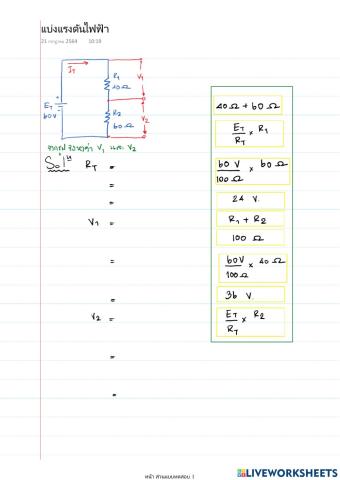 แบ่งแรงดันไฟฟ้า
21 กรกฎาคม 2564 10:19
I_T
R₁
40 Ω
V₁
E_T
60V
R₂
60 Ω
V₂
จากรูป จงหาค่า V₁ และ V₂
Sol!ⁿ R_T =
=
=
V₁ =
=
=
V₂ =
=
=
40 Ω + 60 Ω
E_T/R_T × R₁
60 V/100 Ω × 60 Ω
24 V.
R₁ + R₂
100 Ω
60V/100Ω × 40 Ω
36 V.
E_T/R_T × R₂
หน้า ส่วนแบบทดสอบ 1
LIVEWORKSHEETS